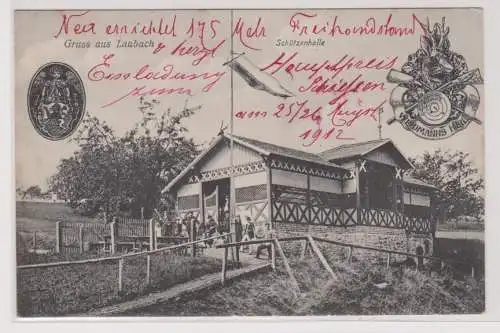 Neu errichtet 175 Metr Freihandstand
Gruss aus Laubach
Schützenhalle
& hergl
Einladung
zum
Hauptpreis
Schießen
am 25/26 August
1912
WEIDMANNS HEIL